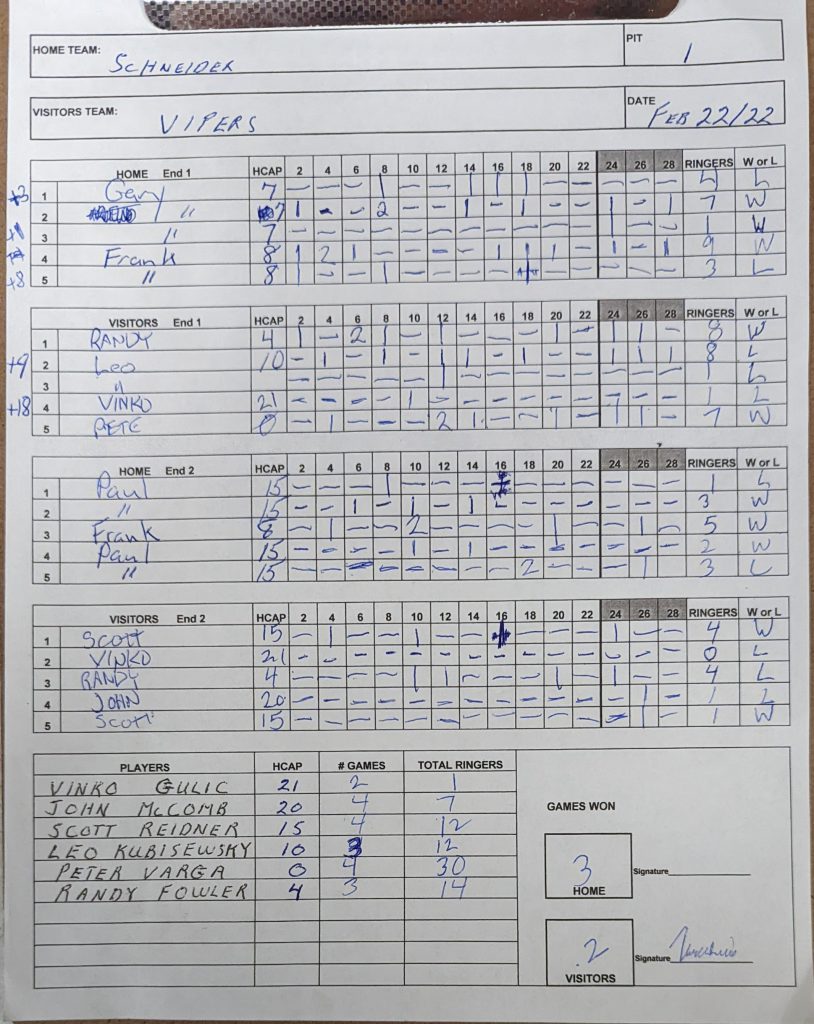 HOME TEAM: SCHNEIDER PIT 1
VISITORS TEAM: VIPERS DATE FEB 22/22
HOME End 1 HCAP 2 4 6 8 10 12 14 16 18 20 22 24 26 28 RINGERS W or L
+3 1 Gary 7 — — — 1 — — 1 1 1 — — — — — L
2 " 7 1 - - 2 — — 1 - 1 — — 1 - 1 7 W
3 " 7 — — — — — — — — — — — 1 — — 1 W
4 Frank 8 1 2 1 — — — — 1 1 1 — 1 - 1 9 W
+8 5 " 8 1 — — 1 — — — — — — — 3 L
VISITORS End 1 HCAP 2 4 6 8 10 12 14 16 18 20 22 24 26 28 RINGERS W or L
1 RANDY 4 1 — 2 1 — 1 — — — 1 — 1 1 — 8 W
+9 2 Leo 10 — 1 — 1 — 1 — — 1 — — 1 1 1 8 L
3 " — — — — — 1 — — — — — — — — 1 L
+18 4 VINKO 21 — — — — 1 — — — — — — — — — 1 L
5 PETE 0 — 1 — — — 2 1 — — 1 — 1 1 — 7 W
HOME End 2 HCAP 2 4 6 8 10 12 14 16 18 20 22 24 26 28 RINGERS W or L
1 Paul 15 — — — 1 — — — — — — — — — 1 L
2 " 15 — — 1 — 1 — 1 — — — — — — — 3 W
3 Frank 8 — 1 — — 2 — — — — 1 — — 1 — 5 W
4 Paul 15 — — — — 1 — 1 — — — — — — — 2 W
5 " 15 — — — — — — — — 2 — — — 1 — 3 L
VISITORS End 2 HCAP 2 4 6 8 10 12 14 16 18 20 22 24 26 28 RINGERS W or L
1 Scott 15 — 1 — — 1 — — — — — 1 — — 4 W
2 VINKO 21 — — — — — — — — — — — — — — 0 L
3 RANDY 4 — — — — 1 1 — — — 1 — 1 — — 4 L
4 JOHN 20 — — — — — — — — — — — — 1 — 1 L
5 Scott 15 — — — — — — — — — — — — 1 — 1 W
PLAYERS HCAP # GAMES TOTAL RINGERS
VINKO GULIC 21 2 1
JOHN McCOMB 20 4 7
SCOTT REIDNER 15 4 12
LEO KUBISEWSKY 10 3 12
PETER VARGA 0 4 30
RANDY FOWLER 4 3 14
GAMES WON
3 HOME Signature
2 VISITORS Signature